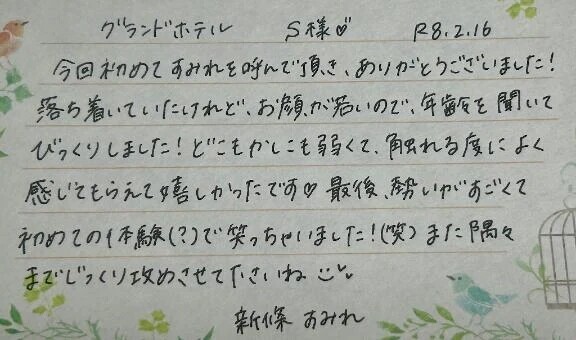 グランドホテル S様♡ R8.2.16
今回初めてすみれを呼んで頂き、ありがとうございました!
落ち着いていたけれど、お顔が若いので、年齢を聞いて
びっくりしました!どこもかしこも弱くて、触れる度によく
感じてもらえて嬉しかったです♡ 最後、勢いがすごくて
初めての体験(?)で笑っちゃいました!(笑) また隅々
までじっくり攻めさせて下さいね
新條 すみれ